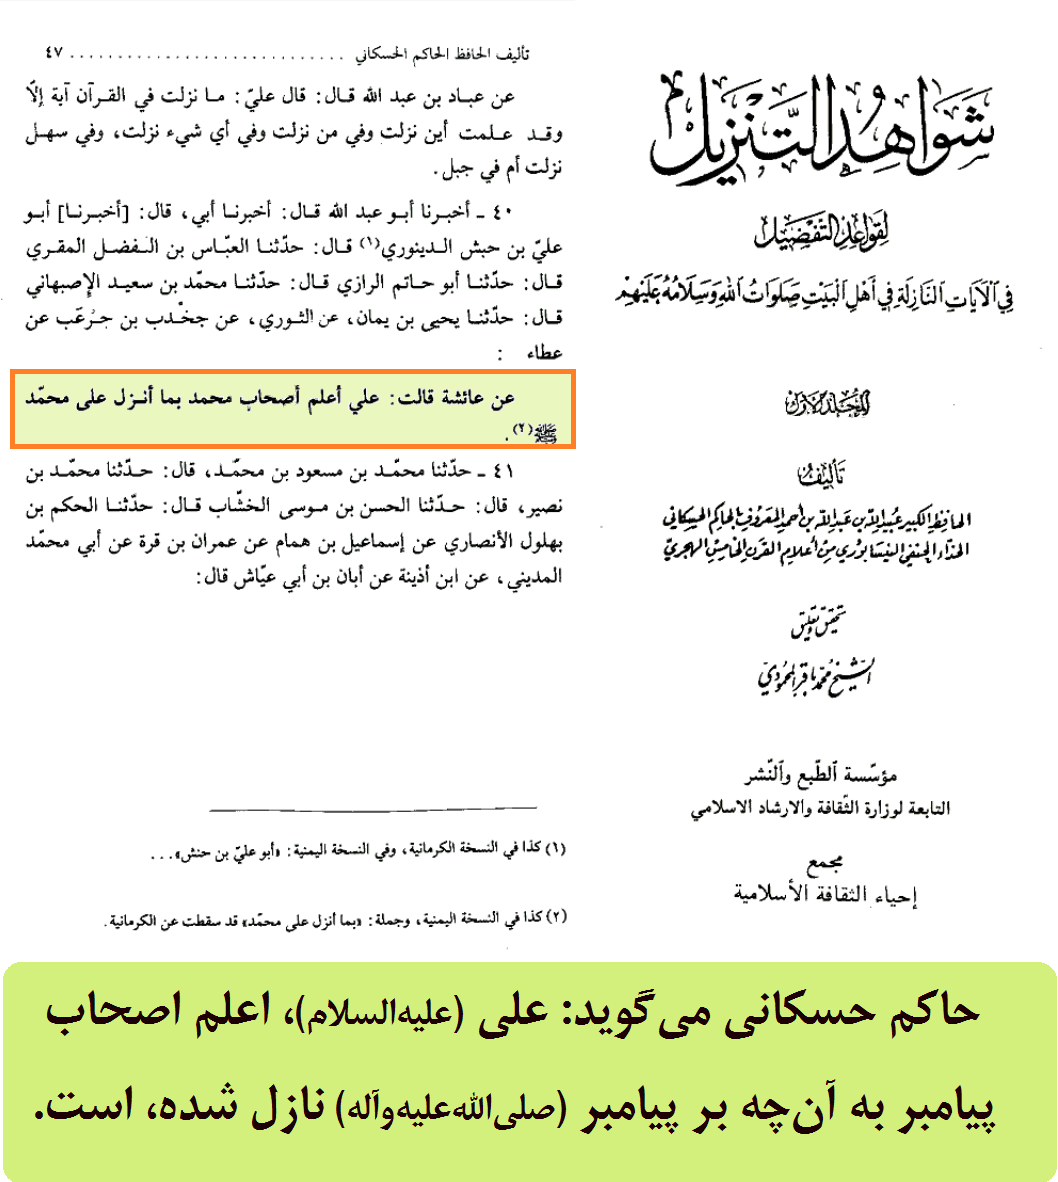 شَوَاهِدُ التَّنْزِيلِ
لِقَوَاعِدِ التَّفْضِيلِ
فِي الْآيَاتِ النَّازِلَةِ فِي أَهْلِ الْبَيْتِ صَلَوَاتُ اللهِ وَسَلَامُهُ عَلَيْهِمْ
المُجَلَّدُ الْأَوَّلُ
تَأْلِيفُ
الحافظ الكبير عبيد الله بن عبد الله بن أحمد المعروف بالحاكم الحسكاني
الحذّاء الحنفي النيسابوري من أعلام القرن الخامس الهجريّ
تحقيق وتعليق
الشّيخ محمّد باقر المحموديّ
مؤسّسة الطّبع والنّشر
التابعة لوزارة الثّقافة والارشاد الاسلامي
مجمع
إحياء الثقافة الأسلامية
تأليف الحافظ الحاكم الحسكاني ............................. ٤٧
عن عباد بن عبد الله قال: قال عليّ: ما نزلت في القرآن آية إلّا
وقد علمت أين نزلت وفي من نزلت وفي أي شيء نزلت، وفي سهل
نزلت أم في جبل.
٤٠ ـ أخبرنا أبو عبد الله قال: أخبرنا أبي، قال: [أخبرنا] أبو
عليّ بن حبش الدينوري(١) قال: حدّثنا العبّاس بن الفضل المقري
قال: حدّثنا أبو حاتم الرازي قال: حدّثنا محمّد بن سعيد الإصبهاني
قال: حدّثنا يحيى بن يمان، عن الثوري، عن جخْدب بن جرْعَب عن
عطاء :
عن عائشة قالت: علي أعلم أصحاب محمد بما أنزل على محمّد
ﷺ(٢).
٤١ ـ حدّثنا محمّد بن مسعود بن محمّد، قال: حدّثنا محمّد بن
نصير، قال: حدّثنا الحسن بن موسى الخشّاب قال: حدّثنا الحكم بن
بهلول الأنصاري عن إسماعيل بن همام عن عمران بن قرة عن أبي محمّد
المديني، عن ابن أذينة عن أبان بن أبي عيّاش قال:
(١) كذا في النسخة الكرمانية، وفي النسخة اليمنية: «أبو عليّ بن حنش»...
(٢) كذا في النسخة اليمنية، وجملة: «بما أنزل على محمّد» قد سقطت عن الكرمانية.
حاکم حسکانی می‌گوید: علی (علیه‌السلام)، اعلم اصحاب
پیامبر به آن‌چه بر پیامبر (صلی‌الله‌علیه‌وآله) نازل شده، است.